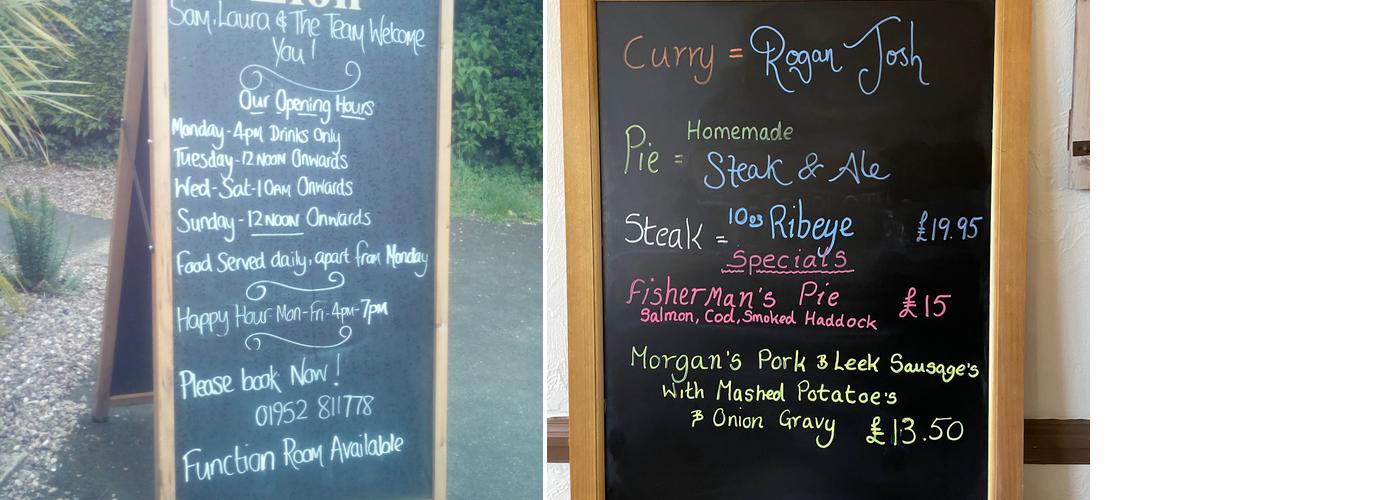 Sam, Laura & The Team Welcome
You!
Our Opening Hours
Monday-4pm Drinks Only
Tuesday-12 NOON Onwards
Wed-Sat-10AM Onwards
Sunday-12 NOON Onwards
Food Served daily, apart from Monday
Happy Hour-Mon-Fri-4pm-7pm
Please book Now!
01952 811778
Function Room Available
Curry = Rogan Josh
Homemade
Pie = Steak & Ale
Steak = 10oz Ribeye £19.95
Specials
Fisherman's Pie £15
Salmon, Cod, Smoked Haddock
Morgan's Pork & Leek Sausage's
With Mashed Potatoe's
& Onion Gravy £13.50